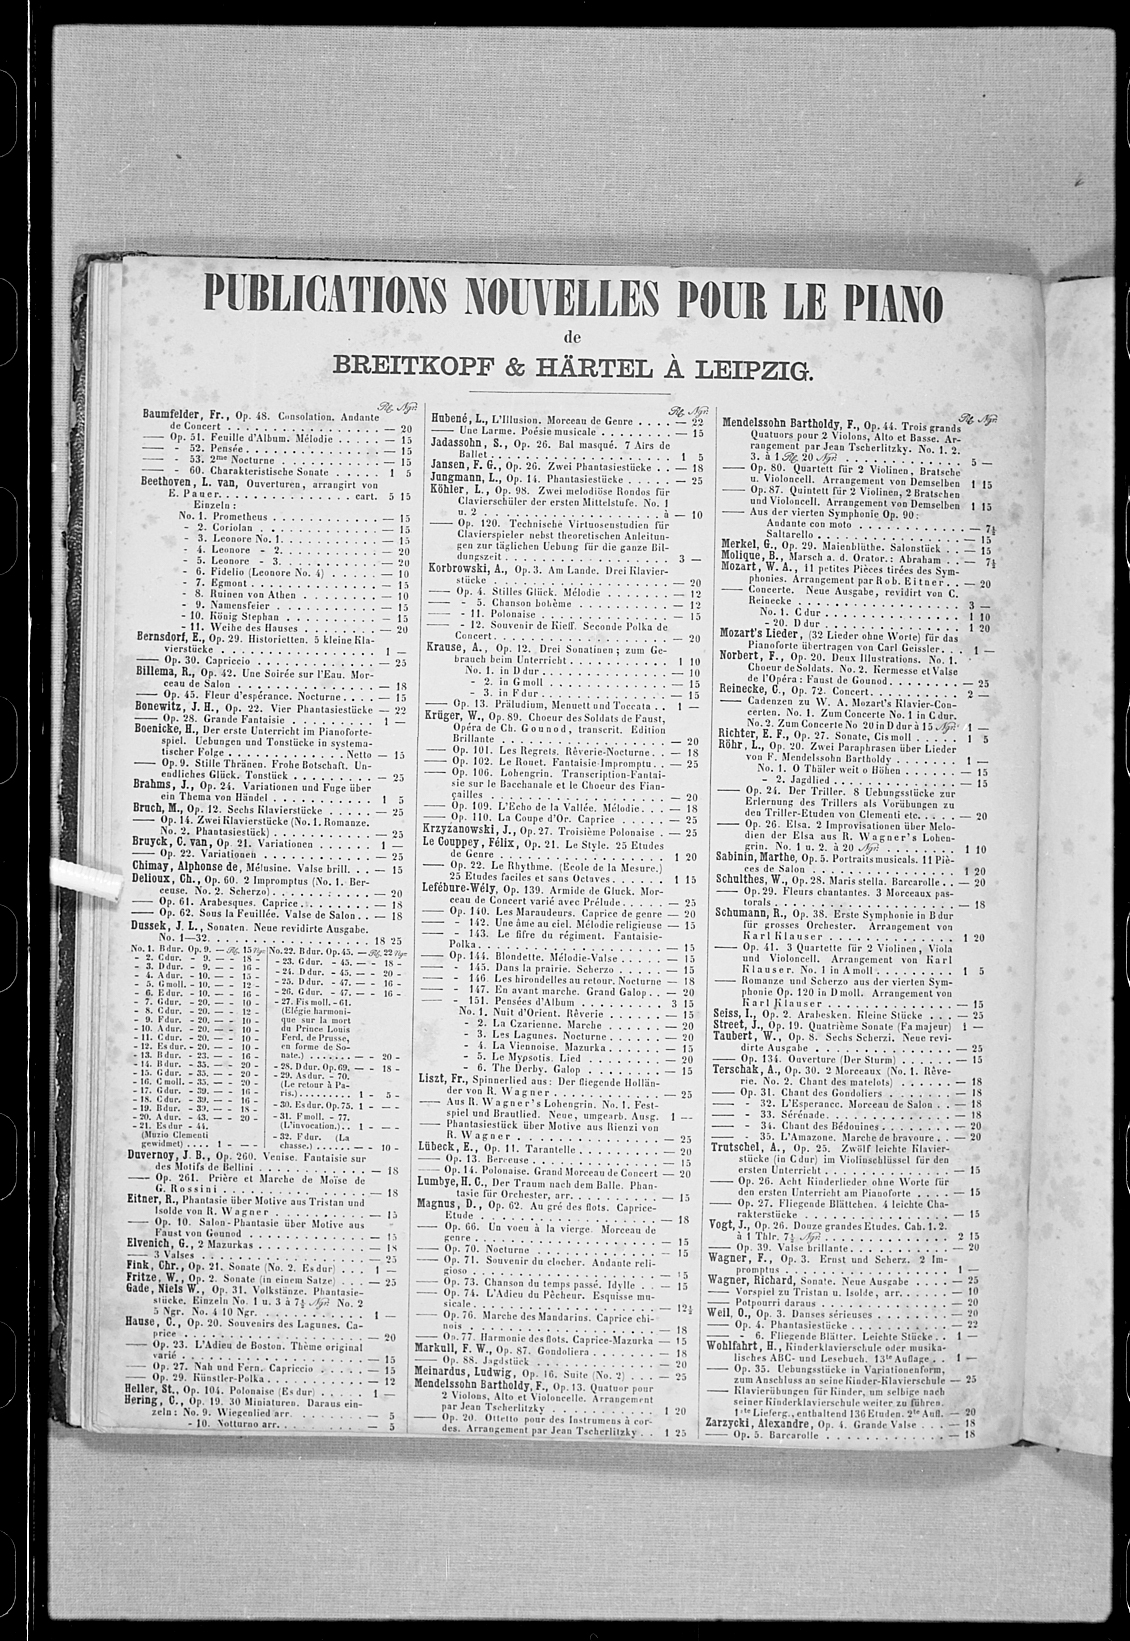 PUBLICATIONS NOUVELLES POUR LE PIANO
de
BREITKOPF & HÄRTEL À LEIPZIG.
Baumfelder, Fr., Op. 48. Consolation. Andante
de Concert . . . — 20
—— Op. 51. Feuille d'Album. Mélodie . . . — 15
—— - 52. Pensée . . . — 15
—— - 53. 2me Nocturne . . . — 15
—— - 60. Charakteristische Sonate . . . 1 5
Beethoven, L. van, Ouverturen, arrangirt von
E. Pauer . . . cart. 5 15
Einzeln:
No. 1. Prometheus . . . — 15
- 2. Coriolan . . . — 15
- 3. Leonore No. 1 . . . — 15
- 4. Leonore - 2 . . . — 20
- 5. Leonore - 3 . . . — 20
- 6. Fidelio (Leonore No. 4) . . . — 10
- 7. Egmont . . . — 15
- 8. Ruinen von Athen . . . — 10
- 9. Namensfeier . . . — 15
- 10. König Stephan . . . — 15
- 11. Weihe des Hauses . . . — 20
Bernsdorf, E., Op. 29. Historietten. 5 kleine Kla-
vierstücke . . . 1 —
—— Op. 30. Capriccio . . . — 25
Billema, R., Op. 42. Une Soirée sur l'Eau. Mor-
ceau de Salon . . . — 18
—— Op. 45. Fleur d'espérance. Nocturne . . . — 15
Bonewitz, J. H., Op. 22. Vier Phantasiestücke — 22
—— Op. 28. Grande Fantaisie . . . 1 —
Boenicke, H., Der erste Unterricht im Pianoforte-
spiel. Uebungen und Tonstücke in systema-
tischer Folge . . . Netto — 15
—— Op. 9. Stille Thränen. Frohe Botschaft. Un-
endliches Glück. Tonstück . . . — 25
Brahms, J., Op. 24. Variationen und Fuge über
ein Thema von Händel . . . 1 5
Bruch, M., Op. 12. Sechs Klavierstücke . . . — 25
—— Op. 14. Zwei Klavierstücke (No. 1. Romanze.
No. 2. Phantasiestück) . . . — 25
Bruyck, C. van, Op. 21. Variationen . . . 1 —
—— Op. 22. Variationen . . . — 25
Chimay, Alphonse de, Mélusine. Valse brill. . . — 15
Delioux, Ch., Op. 60. 2 Impromptus (No. 1. Ber-
ceuse. No. 2. Scherzo) . . . — 20
—— Op. 61. Arabesques. Caprice . . . — 18
—— Op. 62. Sous la Feuillée. Valse de Salon . . — 18
Dussek, J. L., Sonaten. Neue revidirte Ausgabe.
No. 1—32 . . . 18 25
No. 1. B dur. Op. 9. — Rg. 15 Ngr.
- 2. C dur. - 9. — - 18 -
- 3. D dur. - 9. — - 16 -
- 4. A dur. - 10. — - 15 -
- 5. G moll. - 10. — - 12 -
- 6. E dur. - 10. — - 16 -
- 7. G dur. - 20. — - 10 -
- 8. C dur. - 20. — - 12 -
- 9. F dur. - 20. — - 10 -
- 10. A dur. - 20. — - 10 -
- 11. C dur. - 20. — - 10 -
- 12. Es dur. - 20. — - 10 -
- 13. B dur. - 23. — - 16 -
- 14. B dur. - 35. — - 20 -
- 15. G dur. - 35. — - 20 -
- 16. C moll. - 35. — - 20 -
- 17. G dur. - 39. — - 16 -
- 18. C dur. - 39. — - 16 -
- 19. B dur. - 39. — - 18 -
- 20. A dur. - 43. — - 20 -
- 21. Es dur - 44.
(Muzio Clementi
gewidmet) . . . 1 - — -
No. 22. B dur. Op. 45. — Rg. 22 Ngr.
- 23. G dur. - 45. — - 18 -
- 24. D dur. - 45. — - 20 -
- 25. D dur. - 47. — - 16 -
- 26. G dur. - 47. — - 16 -
- 27. Fis moll. - 61.
(Elégie harmoni-
que sur la mort
du Prince Louis
Ferd. de Prusse,
en forme de So-
nate.) . . . — - 20 -
- 28. D dur. Op. 69. — - 18 -
- 29. As dur. - 70.
(Le retour à Pa-
ris.) . . . 1 - 5 -
- 30. Es dur. Op. 75. 1 - — -
- 31. F moll. - 77.
(L'invocation.) . . 1 - — -
- 32. F dur. (La
chasse.) . . . — - 10 -
Duvernoy, J. B., Op. 260. Venise. Fantaisie sur
des Motifs de Bellini . . . — 18
—— Op. 261. Prière et Marche de Moïse de
G. Rossini . . . — 18
Eitner, R., Phantasie über Motive aus Tristan und
Isolde von R. Wagner . . . — 15
—— Op. 10. Salon-Phantasie über Motive aus
Faust von Gounod . . . — 15
Elvenich, G., 2 Mazurkas . . . — 18
—— 3 Valses . . . — 25
Fink, Chr., Op. 21. Sonate (No. 2. Es dur) . . . 1 —
Fritze, W., Op. 2. Sonate (in einem Satze) . . . — 25
Gade, Niels W., Op. 31. Volkstänze. Phantasie-
stücke. Einzeln No. 1 u. 3 à 7½ Ngr. No. 2
5 Ngr. No. 4 10 Ngr. . . . 1 —
Hause, C., Op. 20. Souvenirs des Lagunes. Ca-
price . . . — 20
—— Op. 23. L'Adieu de Boston. Thème original
varié . . . — 15
—— Op. 27. Nah und Fern. Capriccio . . . — 15
—— Op. 29. Künstler-Polka . . . — 12
Heller, St., Op. 104. Polonaise (Es dur) . . . 1 —
Hering, C., Op. 19. 30 Miniaturen. Daraus ein-
zeln: No. 9. Wiegenlied arr. . . . — 5
- 10. Notturno arr. . . . — 5
Rg. Ngr.
Hubené, L., L'Illusion. Morceau de Genre . . . — 22
—— Une Larme. Poésie musicale . . . — 15
Jadassohn, S., Op. 26. Bal masqué. 7 Airs de
Ballet . . . 1 5
Jansen, F. G., Op. 26. Zwei Phantasiestücke . . — 18
Jungmann, L., Op. 14. Phantasiestücke . . . — 25
Köhler, L., Op. 98. Zwei melodiöse Rondos für
Clavierschüler der ersten Mittelstufe. No. 1
u. 2 . . . à — 10
—— Op. 120. Technische Virtuosenstudien für
Clavierspieler nebst theoretischen Anleitun-
gen zur täglichen Uebung für die ganze Bil-
dungszeit . . . 3 —
Korbrowski, A., Op. 3. Am Lande. Drei Klavier-
stücke . . . — 20
—— Op. 4. Stilles Glück. Mélodie . . . — 12
—— - 5. Chanson bohème . . . — 12
—— - 11. Polonaise . . . — 15
—— - 12. Souvenir de Kieff. Seconde Polka de
Concert . . . — 20
Krause, A., Op. 12. Drei Sonatinen; zum Ge-
brauch beim Unterricht . . . 1 10
No. 1. in D dur . . . — 10
- 2. in G moll . . . — 15
- 3. in F dur . . . — 15
—— Op. 13. Präludium, Menuett und Toccata . . 1 —
Krüger, W., Op. 89. Choeur des Soldats de Faust,
Opéra de Ch. Gounod, transcrit. Edition
Brillante . . . — 20
—— Op. 101. Les Regrets. Rêverie-Nocturne . . — 18
—— Op. 102. Le Rouet. Fantaisie-Impromptu . . — 25
—— Op. 106. Lohengrin. Transcription-Fantai-
sie sur le Bacchanale et le Choeur des Fian-
çailles . . . — 20
—— Op. 109. L'Echo de la Vallée. Mélodie . . — 18
—— Op. 110. La Coupe d'Or. Caprice . . . — 25
Krzyżanowski, J., Op. 27. Troisième Polonaise . — 25
Le Couppey, Félix, Op. 21. Le Style. 25 Etudes
de Genre . . . 1 20
—— Op. 22. Le Rhythme. (Ecole de la Mesure.)
25 Etudes faciles et sans Octaves . . . 1 15
Lefébure-Wély, Op. 139. Armide de Gluck. Mor-
ceau de Concert varié avec Prélude . . . — 25
—— Op. 140. Les Maraudeurs. Caprice de genre — 20
—— - 142. Une âme au ciel. Mélodie religieuse — 15
—— - 143. Le fifre du régiment. Fantaisie-
Polka . . . — 15
—— Op. 144. Blondette. Mélodie-Valse . . . — 15
—— - 145. Dans la prairie. Scherzo . . . — 15
—— - 146. Les hirondelles au retour. Nocturne — 18
—— - 147. En avant marche. Grand Galop . . — 20
—— - 151. Pensées d'Album . . . 3 15
No. 1. Nuit d'Orient. Rêverie . . . — 15
- 2. La Czarienne. Marche . . . — 20
- 3. Les Lagunes. Nocturne . . . — 20
- 4. La Viennoise. Mazurka . . . — 15
- 5. Le Myosotis. Lied . . . — 20
- 6. The Derby. Galop . . . — 15
Liszt, Fr., Spinnerlied aus: Der fliegende Hollän-
der von R. Wagner . . . — 25
—— Aus R. Wagner's Lohengrin. No. 1. Fest-
spiel und Brautlied. Neue, umgearb. Ausg. 1 —
—— Phantasiestück über Motive aus Rienzi von
R. Wagner . . . — 25
Lübeck, E., Op. 11. Tarantelle . . . — 20
—— Op. 13. Berceuse . . . — 15
—— Op. 14. Polonaise. Grand Morceau de Concert — 20
Lumbye, H. C., Der Traum nach dem Balle. Phan-
tasie für Orchester, arr. . . . — 15
Magnus, D., Op. 62. Au gré des flots. Caprice-
Etude . . . — 18
—— Op. 66. Un voeu à la vierge. Morceau de
genre . . . — 15
—— Op. 70. Nocturne . . . — 15
—— Op. 71. Souvenir du clocher. Andante reli-
gioso . . . — 15
—— Op. 73. Chanson du temps passé. Idylle . . — 15
—— Op. 74. L'Adieu du Pêcheur. Esquisse mu-
sicale . . . — 12½
—— Op. 76. Marche des Mandarins. Caprice chi-
nois . . . — 18
—— Op. 77. Harmonie des flots. Caprice-Mazurka — 15
Markull, F. W., Op. 87. Gondoliera . . . — 18
—— Op. 88. Jagdstück . . . — 20
Meinardus, Ludwig, Op. 16. Suite (No. 2) . . . — 25
Mendelssohn Bartholdy, F., Op. 13. Quatuor pour
2 Violons, Alto et Violoncelle. Arrangement
par Jean Tscherlitzky . . . 1 20
—— Op. 20. Ottetto pour des Instrumens à cor-
des. Arrangement par Jean Tscherlitzky . . 1 25
Rg. Ngr.
Mendelssohn Bartholdy, F., Op. 44. Trois grands
Quatuors pour 2 Violons, Alto et Basse. Ar-
rangement par Jean Tscherlitzky. No. 1. 2.
3. à 1 Rg. 20 Ngr. . . . 5 —
—— Op. 80. Quartett für 2 Violinen, Bratsche
u. Violoncell. Arrangement von Demselben 1 15
—— Op. 87. Quintett für 2 Violinen, 2 Bratschen
und Violoncell. Arrangement von Demselben 1 15
—— Aus der vierten Symphonie Op. 90:
Andante con moto . . . — 7½
Saltarello . . . — 15
Merkel, G., Op. 29. Maienblüthe. Salonstück . . — 15
Molique, B., Marsch a. d. Orator.: Abraham . . — 7½
Mozart, W. A., 11 petites Pièces tirées des Sym-
phonies. Arrangement par Rob. Eitner . . — 20
—— Concerte. Neue Ausgabe, revidirt von C.
Reinecke . . . 3 —
No. 1. C dur . . . 1 10
- 20. D dur . . . 1 20
Mozart's Lieder, (32 Lieder ohne Worte) für das
Pianoforte übertragen von Carl Geissler . . . 1 —
Norbert, F., Op. 20. Deux Illustrations. No. 1.
Choeur de Soldats. No. 2. Kermesse et Valse
de l'Opéra: Faust de Gounod . . . — 25
Reinecke, C., Op. 72. Concert . . . 2 —
—— Cadenzen zu W. A. Mozart's Klavier-Con-
certen. No. 1. Zum Concerte No. 1 in C dur.
No. 2. Zum Concerte No 20 in D dur à 15 Ngr. 1 —
Richter, E. F., Op. 27. Sonate, Cis moll . . . 1 5
Röhr, L., Op. 20. Zwei Paraphrasen über Lieder
von F. Mendelssohn Bartholdy . . . 1 —
No. 1. O Thäler weit o Höhen . . . — 15
- 2. Jagdlied . . . — 15
—— Op. 24. Der Triller. 8 Uebungsstücke zur
Erlernung des Trillers als Vorübungen zu
den Triller-Etuden von Clementi etc. . . . — 20
—— Op. 26. Elsa. 2 Improvisationen über Melo-
dien der Elsa aus R. Wagner's Lohen-
grin. No. 1 u. 2. à 20 Ngr. . . . 1 10
Sabinin, Marthe, Op. 5. Portraits musicals. 11 Piè-
ces de Salon . . . 1 20
Schulthes, W., Op. 28. Maris stella. Barcarolle . . — 20
—— Op. 29. Fleurs chantantes. 3 Morceaux pas-
torals . . . — 18
Schumann, R., Op. 38. Erste Symphonie in B dur
für grosses Orchester. Arrangement von
Karl Klauser . . . 1 20
—— Op. 41. 3 Quartette für 2 Violinen, Viola
und Violoncell. Arrangement von Karl
Klauser. No. 1 in A moll . . . 1 5
—— Romanze und Scherzo aus der vierten Sym-
phonie Op. 120 in D moll. Arrangement von
Karl Klauser . . . — 15
Seiss, I., Op. 2. Arabesken. Kleine Stücke . . . — 25
Street, J., Op. 19. Quatrième Sonate (Fa majeur) 1 —
Taubert, W., Op. 8. Sechs Scherzi. Neue revi-
dirte Ausgabe . . . — 25
—— Op. 134. Ouverture (Der Sturm) . . . — 15
Terschak, A., Op. 30. 2 Morceaux (No. 1. Rêve-
rie. No. 2. Chant des matelots) . . . — 18
—— Op. 31. Chant des Gondoliers . . . — 18
—— - 32. L'Esperance. Morceau de Salon . . — 18
—— - 33. Sérénade . . . — 18
—— - 34. Chant des Bédouines . . . — 20
—— - 35. L'Amazone. Marche de bravoure . . — 20
Trutschel, A., Op. 25. Zwölf leichte Klavier-
stücke (in C dur) im Violinschlüssel für den
ersten Unterricht . . . — 15
—— Op. 26. Acht Kinderlieder ohne Worte für
den ersten Unterricht am Pianoforte . . . — 15
—— Op. 27. Fliegende Blättchen. 4 leichte Cha-
rakterstücke . . . — 15
Vogt, J., Op. 26. Douze grandes Etudes. Cah. 1. 2.
à 1 Thlr. 7½ Ngr. . . . 2 15
—— Op. 39. Valse brillante . . . — 20
Wagner, F., Op. 3. Ernst und Scherz. 2 Im-
promptus . . . 1 —
Wagner, Richard, Sonate. Neue Ausgabe . . . — 25
—— Vorspiel zu Tristan u. Isolde, arr. . . . — 10
—— Potpourri daraus . . . — 20
Weil, O., Op. 3. Danses sérieuses . . . — 20
—— Op. 4. Phantasiestücke . . . — 22
—— - 6. Fliegende Blätter. Leichte Stücke . . 1 —
Wohlfahrt, H., Kinderklavierschule oder musika-
lisches ABC- und Lesebuch. 13te Auflage . . 1 —
—— Op. 35. Uebungsstücke in Variationenform,
zum Anschluss an seine Kinder-Klavierschule — 25
—— Klavierübungen für Kinder, um selbige nach
seiner Kinderklavierschule weiter zu führen.
1ste Lieferg., enthaltend 136 Etuden. 2te Aufl. — 20
Zarzycki, Alexandre, Op. 4. Grande Valse . . . — 18
—— Op. 5. Barcarolle . . . — 18